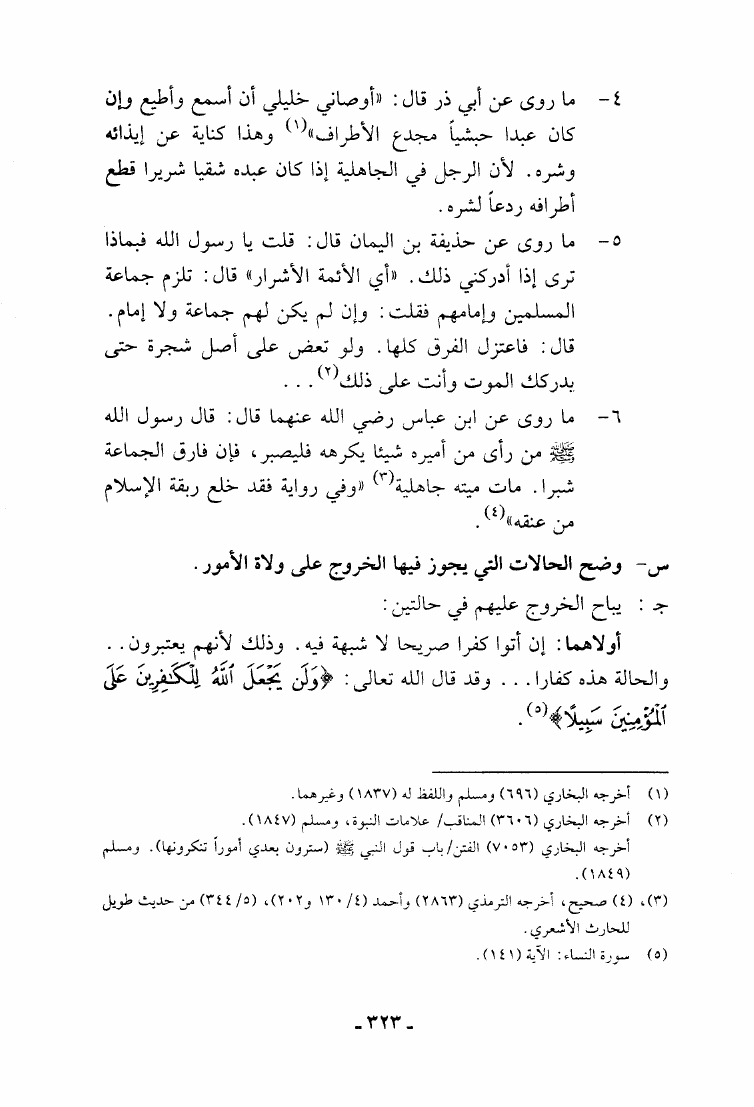 ٤- ما روى عن أبي ذر قال: «أوصاني خليلي أن أسمع وأطيع وإن
كان عبدا حبشياً مجدع الأطراف»(١) وهذا كناية عن إيذائه
وشره. لأن الرجل في الجاهلية إذا كان عبده شقيا شريرا قطع
أطرافه ردعاً لشره.
٥- ما روى عن حذيفة بن اليمان قال: قلت يا رسول الله فبماذا
ترى إذا أدركني ذلك. «أي الأئمة الأشرار» قال: تلزم جماعة
المسلمين وإمامهم فقلت: وإن لم يكن لهم جماعة ولا إمام.
قال: فاعتزل الفرق كلها. ولو تعض على أصل شجرة حتى
يدركك الموت وأنت على ذلك(٢)...
٦- ما روى عن ابن عباس رضي الله عنهما قال: قال رسول الله
ﷺ من رأى من أميره شيئا يكرهه فليصبر، فإن فارق الجماعة
شبرا. مات ميته جاهلية(٣) «وفي رواية فقد خلع ربقة الإسلام
من عنقه»(٤).
س- وضح الحالات التي يجوز فيها الخروج على ولاة الأمور.
جـ : يباح الخروج عليهم في حالتين:
أولاهما: إن أتوا كفرا صريحا لا شبهة فيه. وذلك لأنهم يعتبرون..
والحالة هذه كفارا... وقد قال الله تعالى: ﴿وَلَن يَجْعَلَ ٱللَّهُ لِلْكَٰفِرِينَ عَلَى
ٱلْمُؤْمِنِينَ سَبِيلًا﴾(٥).
(١) أخرجه البخاري (٦٩٦) ومسلم واللفظ له (١٨٣٧) وغيرهما.
(٢) أخرجه البخاري (٣٦٠٦) المناقب/ علامات النبوة، ومسلم (١٨٤٧).
أخرجه البخاري (٧٠٥٣) الفتن/ باب قول النبي ﷺ (سترون بعدي أموراً تنكرونها). ومسلم
(١٨٤٩).
(٣)، (٤) صحيح، أخرجه الترمذي (٢٨٦٣) وأحمد (٤/ ١٣٠ و٢٠٢)، (٥/ ٣٤٤) من حديث طويل
للحارث الأشعري.
(٥) سورة النساء: الآية (١٤١).
- ٣٢٣ -